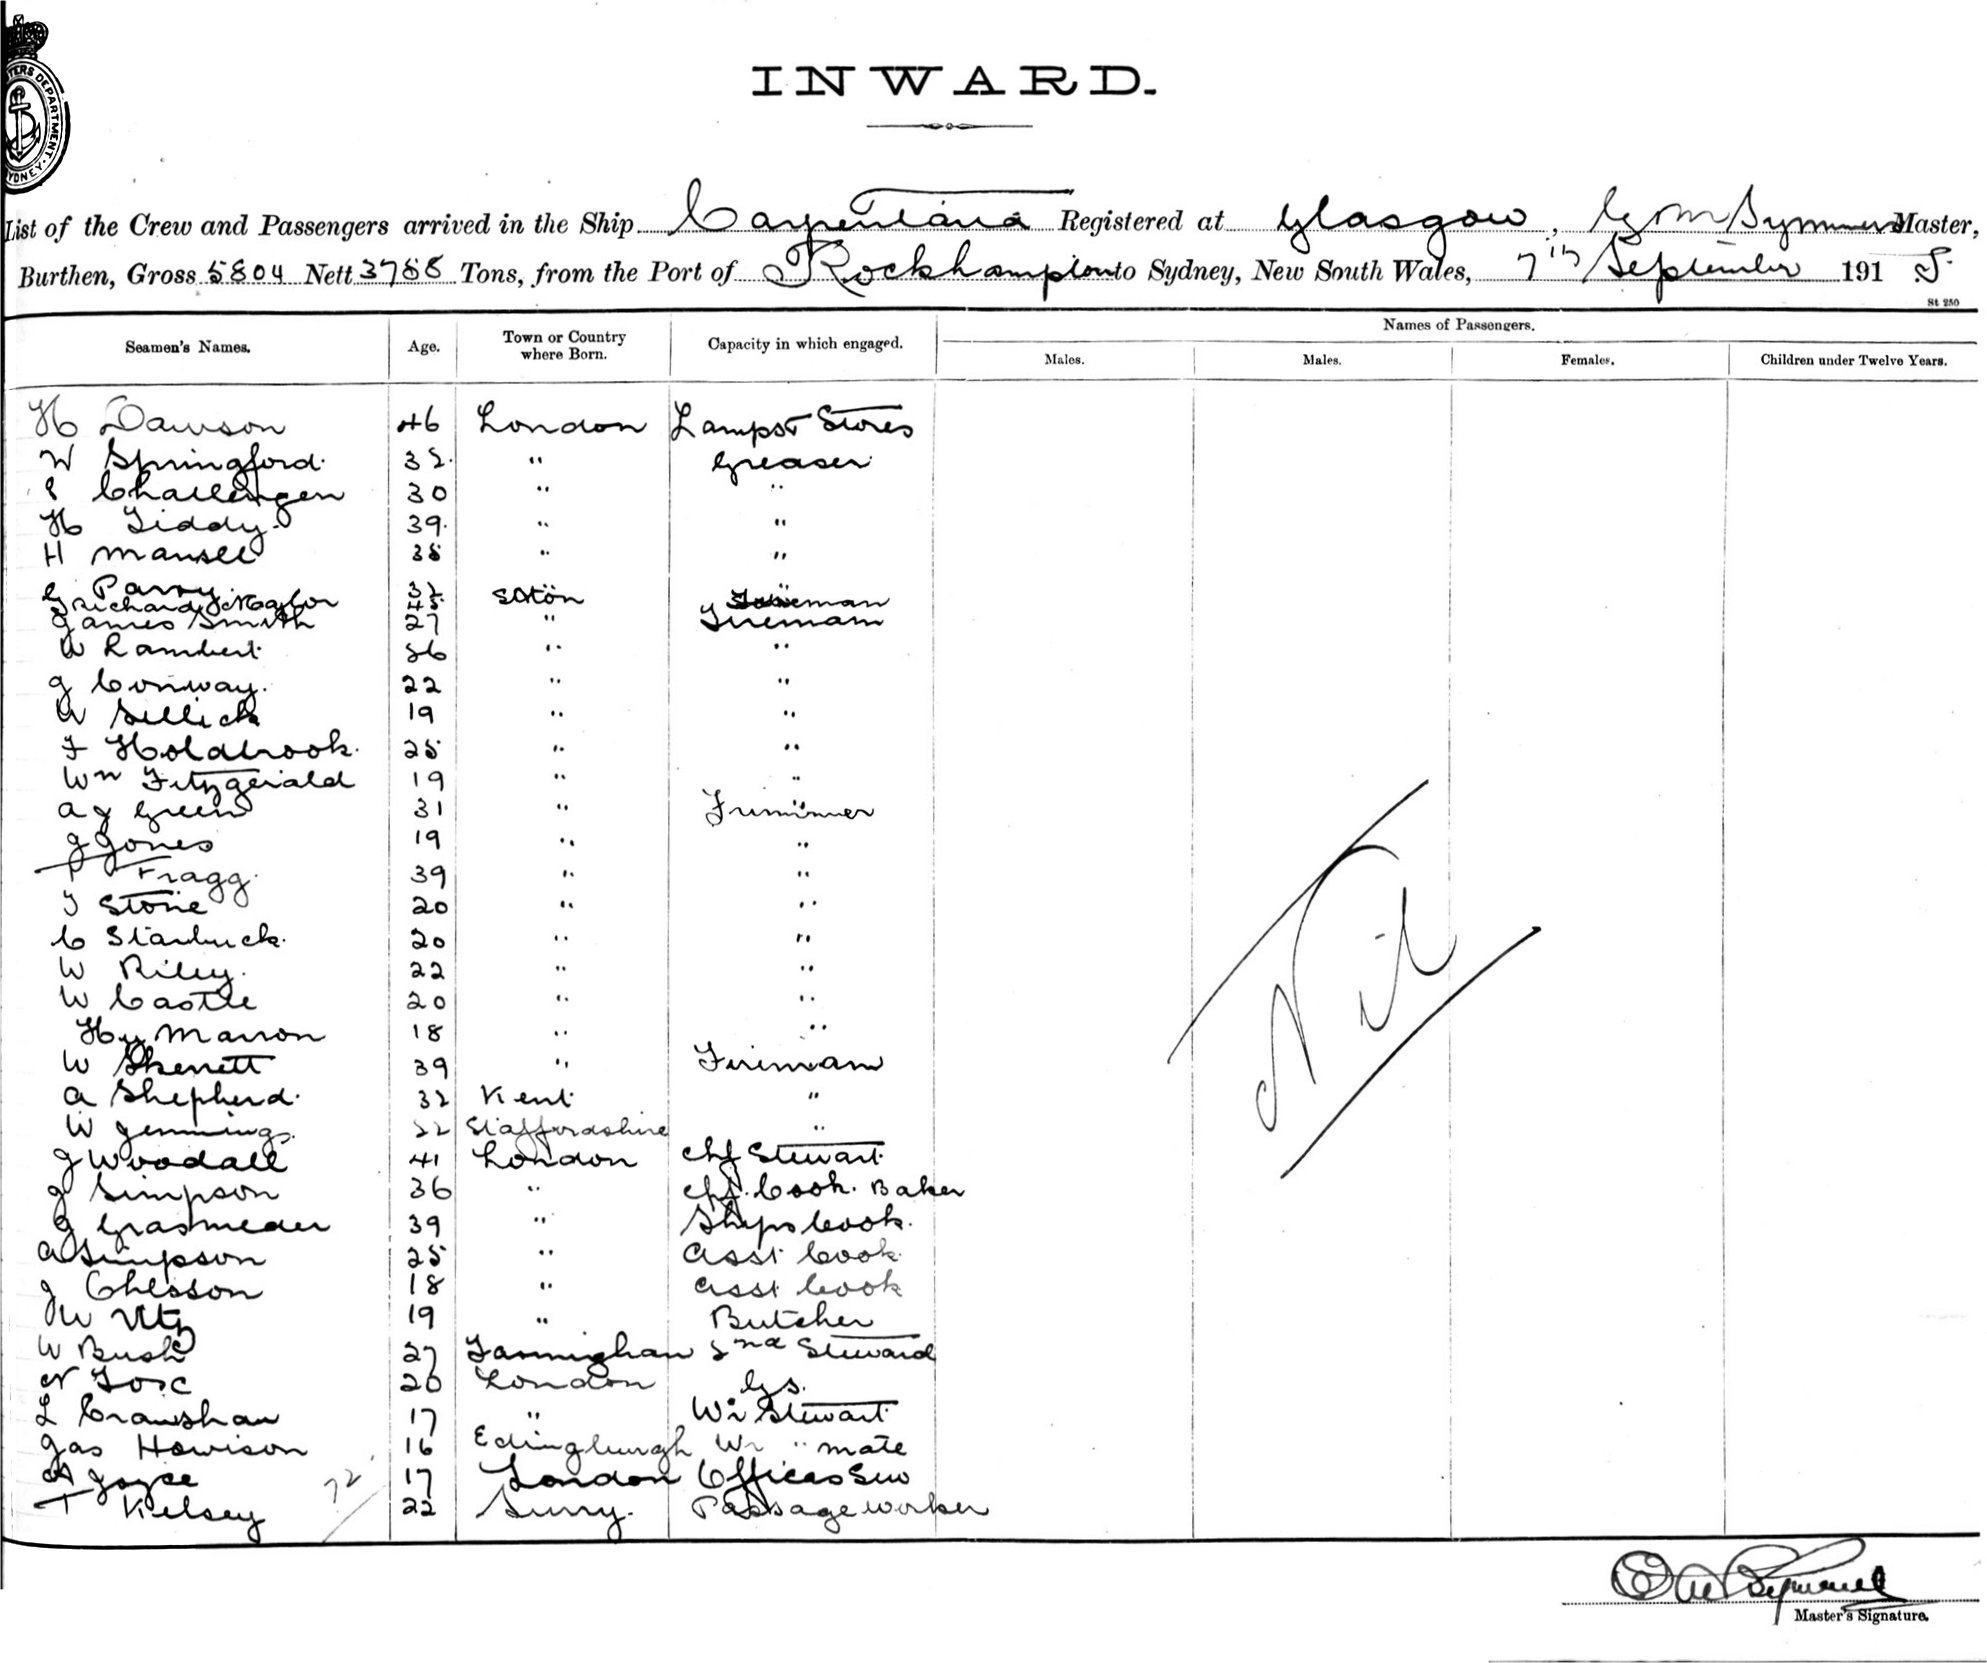 TERS DEPARTMENT. SYDNEY.
INWARD.
List of the Crew and Passengers arrived in the Ship Carpentaria Registered at Glasgow, G M Symmers Master,
Burthen, Gross 5804 Nett 3758 Tons, from the Port of Rockhampton to Sydney, New South Wales, 7th September 191 5
St 250
Seamen's Names. Age. Town or Country where Born. Capacity in which engaged. Names of Passengers.
Males. Males. Females. Children under Twelve Years.
H Dawson 46 London Lamps & Stores
W Springford 32 " Greaser
Challengen 30 " "
H Tiddy 39 " "
H Mansell 38 " "
G Parry 32 "
Richard Naylor 45 Soton
James Smith 27 " Fireman
W Lambert 36 " "
J Conway 22 " "
W Sellick 19 " "
F Holdbrook 25 " "
Wm Fitzgerald 19 " "
A J Green 31 " Trimmer
J Jones 19 " "
T Fragg 39 " "
J Stone 20 " "
C Starbuck 20 " "
W Riley 22 " "
W Castle 20 " "
Hy Marron 18 " "
W Skerrett 39 " Fireman
A Shepherd 32 Kent "
W Jennings 22 Staffordshire "
J Woodall 41 London Chf Stewart
J Simpson 36 " Chf. Cook. Baker
G Grasmeder 39 " Ships Cook.
A Simpson 25 " Asst Cook
J Ohlsson 18 " Asst Cook
W Utz 19 " Butcher
W Bush 27 Farmighan 2nd Steward
20 London G.S.
L Crawshaw 17 " Wr Stewart
Jas Howison 16 Edingburgh Wr " mate
A Joyce 17 London Officers Sew
T Kelsey 72 22 Surry. Passage worker
Nil
G M Symmers
Master's Signature.